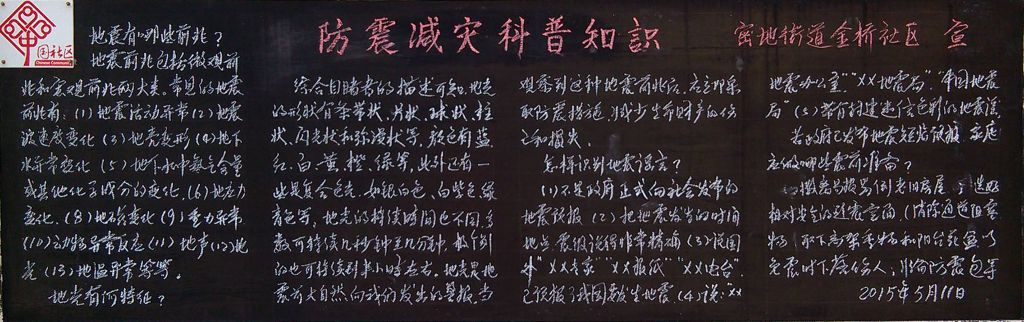 国社区
Chinese Community
防震减灾科普知識
密地街道金桥社区 宣
地震有哪些前兆?
地震前兆包括微观前
兆和宏观前兆两大类。常见的地震
前兆有:(1)地震活动异常(2)地震
波速度变化(3)地壳变形(4)地下
水异常变化(5)地下水中氡气含量
或其他化学成分的变化,(6)地应力
变化,(8)地磁变化(9)重力异常
(10)动物异常反应(11)地声(12)地
光(13)地温异常等等。
地光有何特征?
综合目睹者的描述可知,地光
的形状有条带状、片状、球状、柱
状、闪光状和弥漫状等,颜色有蓝、
红、白、黄、橙、绿等,此外还有一
些是复合色光,如银白色、白紫色绿
青色等,地光的持续时间也不同,多
数可持续几秒钟至几分钟,极个别
的也可持续到半小时左右。地光是地
震前大自然向我们发出的警报,当
观察到这种地震前兆后,应立即采
取防震措施,减少生命财产的伤
亡和损失。
怎样识别地震谣言?
(1)不是政府正式向社会发布的
地震预报(2)把地震发生的时间
地点、震级说得非常精确(3)说国
外“XX专家”“XX报纸”“XX电台”
已预报了我国要发生地震(4)说:“XX
地震办公室”“XX地震局”“中国地震
局”(5)带有封建迷信色彩的地震谣
若政府已发布地震短临预报,家庭
应做哪些震前准备?
撤离易损易倒老旧房屋
相对安全的避震空间,(清除通道阻塞
物 取下高架重物和阳台花盆以
免震时下落伤人,准备防震包等
2015年5月11日